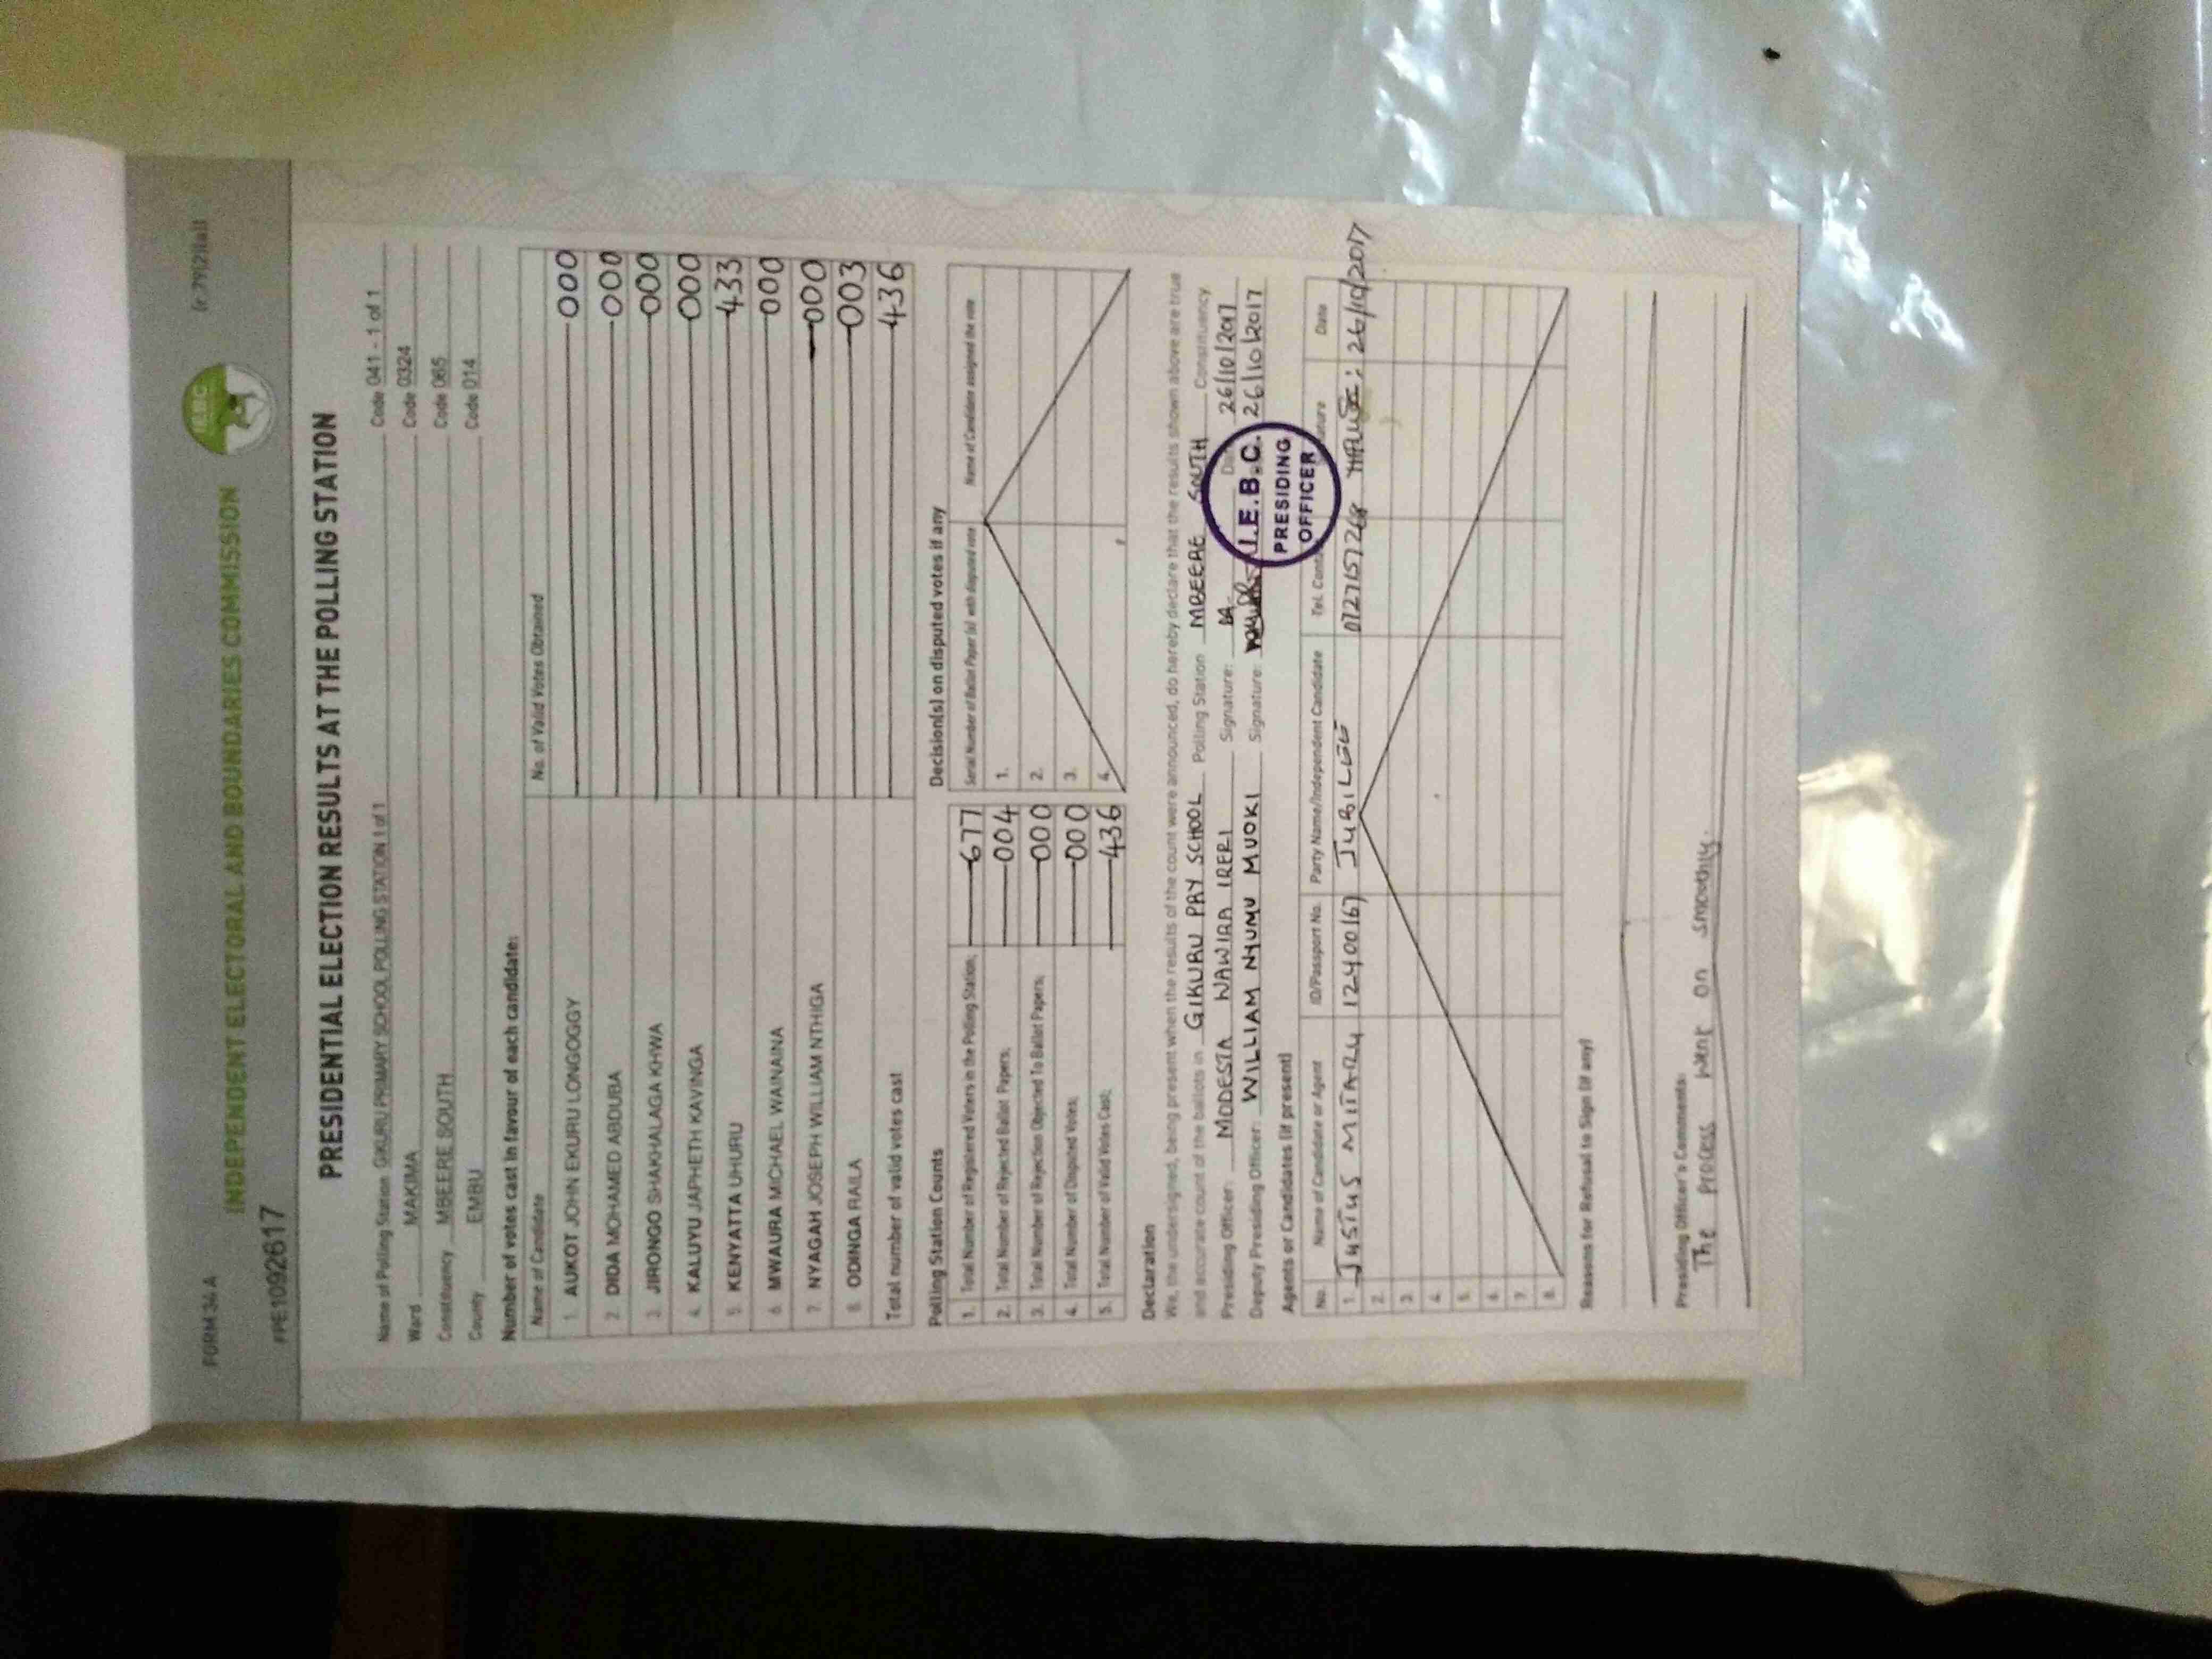 FORM 34A
INDEPENDENT ELECTORAL AND BOUNDARIES COMMISSION
IEBC
#PE1092617
PRESIDENTIAL ELECTION RESULTS AT THE POLLING STATION
Name of Polling Station GIKURU PRIMARY SCHOOL POLLING STATION 1 of 1 Code 041 - 1 of 1
Ward MAKIMA Code 0324
Constituency MBEERE SOUTH Code 065
County EMBU Code 014
Number of votes cast in favour of each candidate:
Name of Candidate No. of Valid Votes Obtained
1. AUKOT JOHN EKURU LONGOGGY 000
2. DIDA MOHAMED ABDUBA 000
3. JIRONGO SHAKHALAGA KHWA 000
4. KALUYU JAPHETH KAVINGA 000
5. KENYATTA UHURU 433
6. MWAURA MICHAEL WAINAINA 000
7. NYAGAH JOSEPH WILLIAM NTHIGA 000
8. ODINGA RAILA 003
Total number of valid votes cast 436
Polling Station Counts
1. Total Number of Registered Voters in the Polling Station; 677
2. Total Number of Rejected Ballot Papers; 004
3. Total Number of Rejection Objected To Ballot Papers; 000
4. Total Number of Disputed Votes; 000
5. Total Number of Valid Votes Cast; 436
Decision(s) on disputed votes if any
Serial Number of Ballot Paper (s) with disputed vote Name of Candidate assigned the vote
1.
2.
3.
4.
Declaration
We, the undersigned, being present when the results of the count were announced, do hereby declare that the results shown above are true
and accurate count of the ballots in GIKURU PRY SCHOOL Polling Station MBEERE SOUTH Constituency.
Presiding Officer: MODESTA WAWIRA IRERI Signature: 26/10/2017
Deputy Presiding Officer: WILLIAM NYUMU MUOKI Signature: 26/10/2017
I.E.B.C.
PRESIDING
OFFICER
Agents or Candidates (if present)
No. Name of Candidate or Agent ID/Passport No. Party Name/Independent Candidate Tel. Date
1. JUSTUS MITARY 12400167 JUBILEE 0727157268 26/10/2017
2.
3.
4.
5.
6.
7.
8.
Reasons for Refusal to Sign (if any)
Presiding Officer's Comments:
The process went on smoothly.